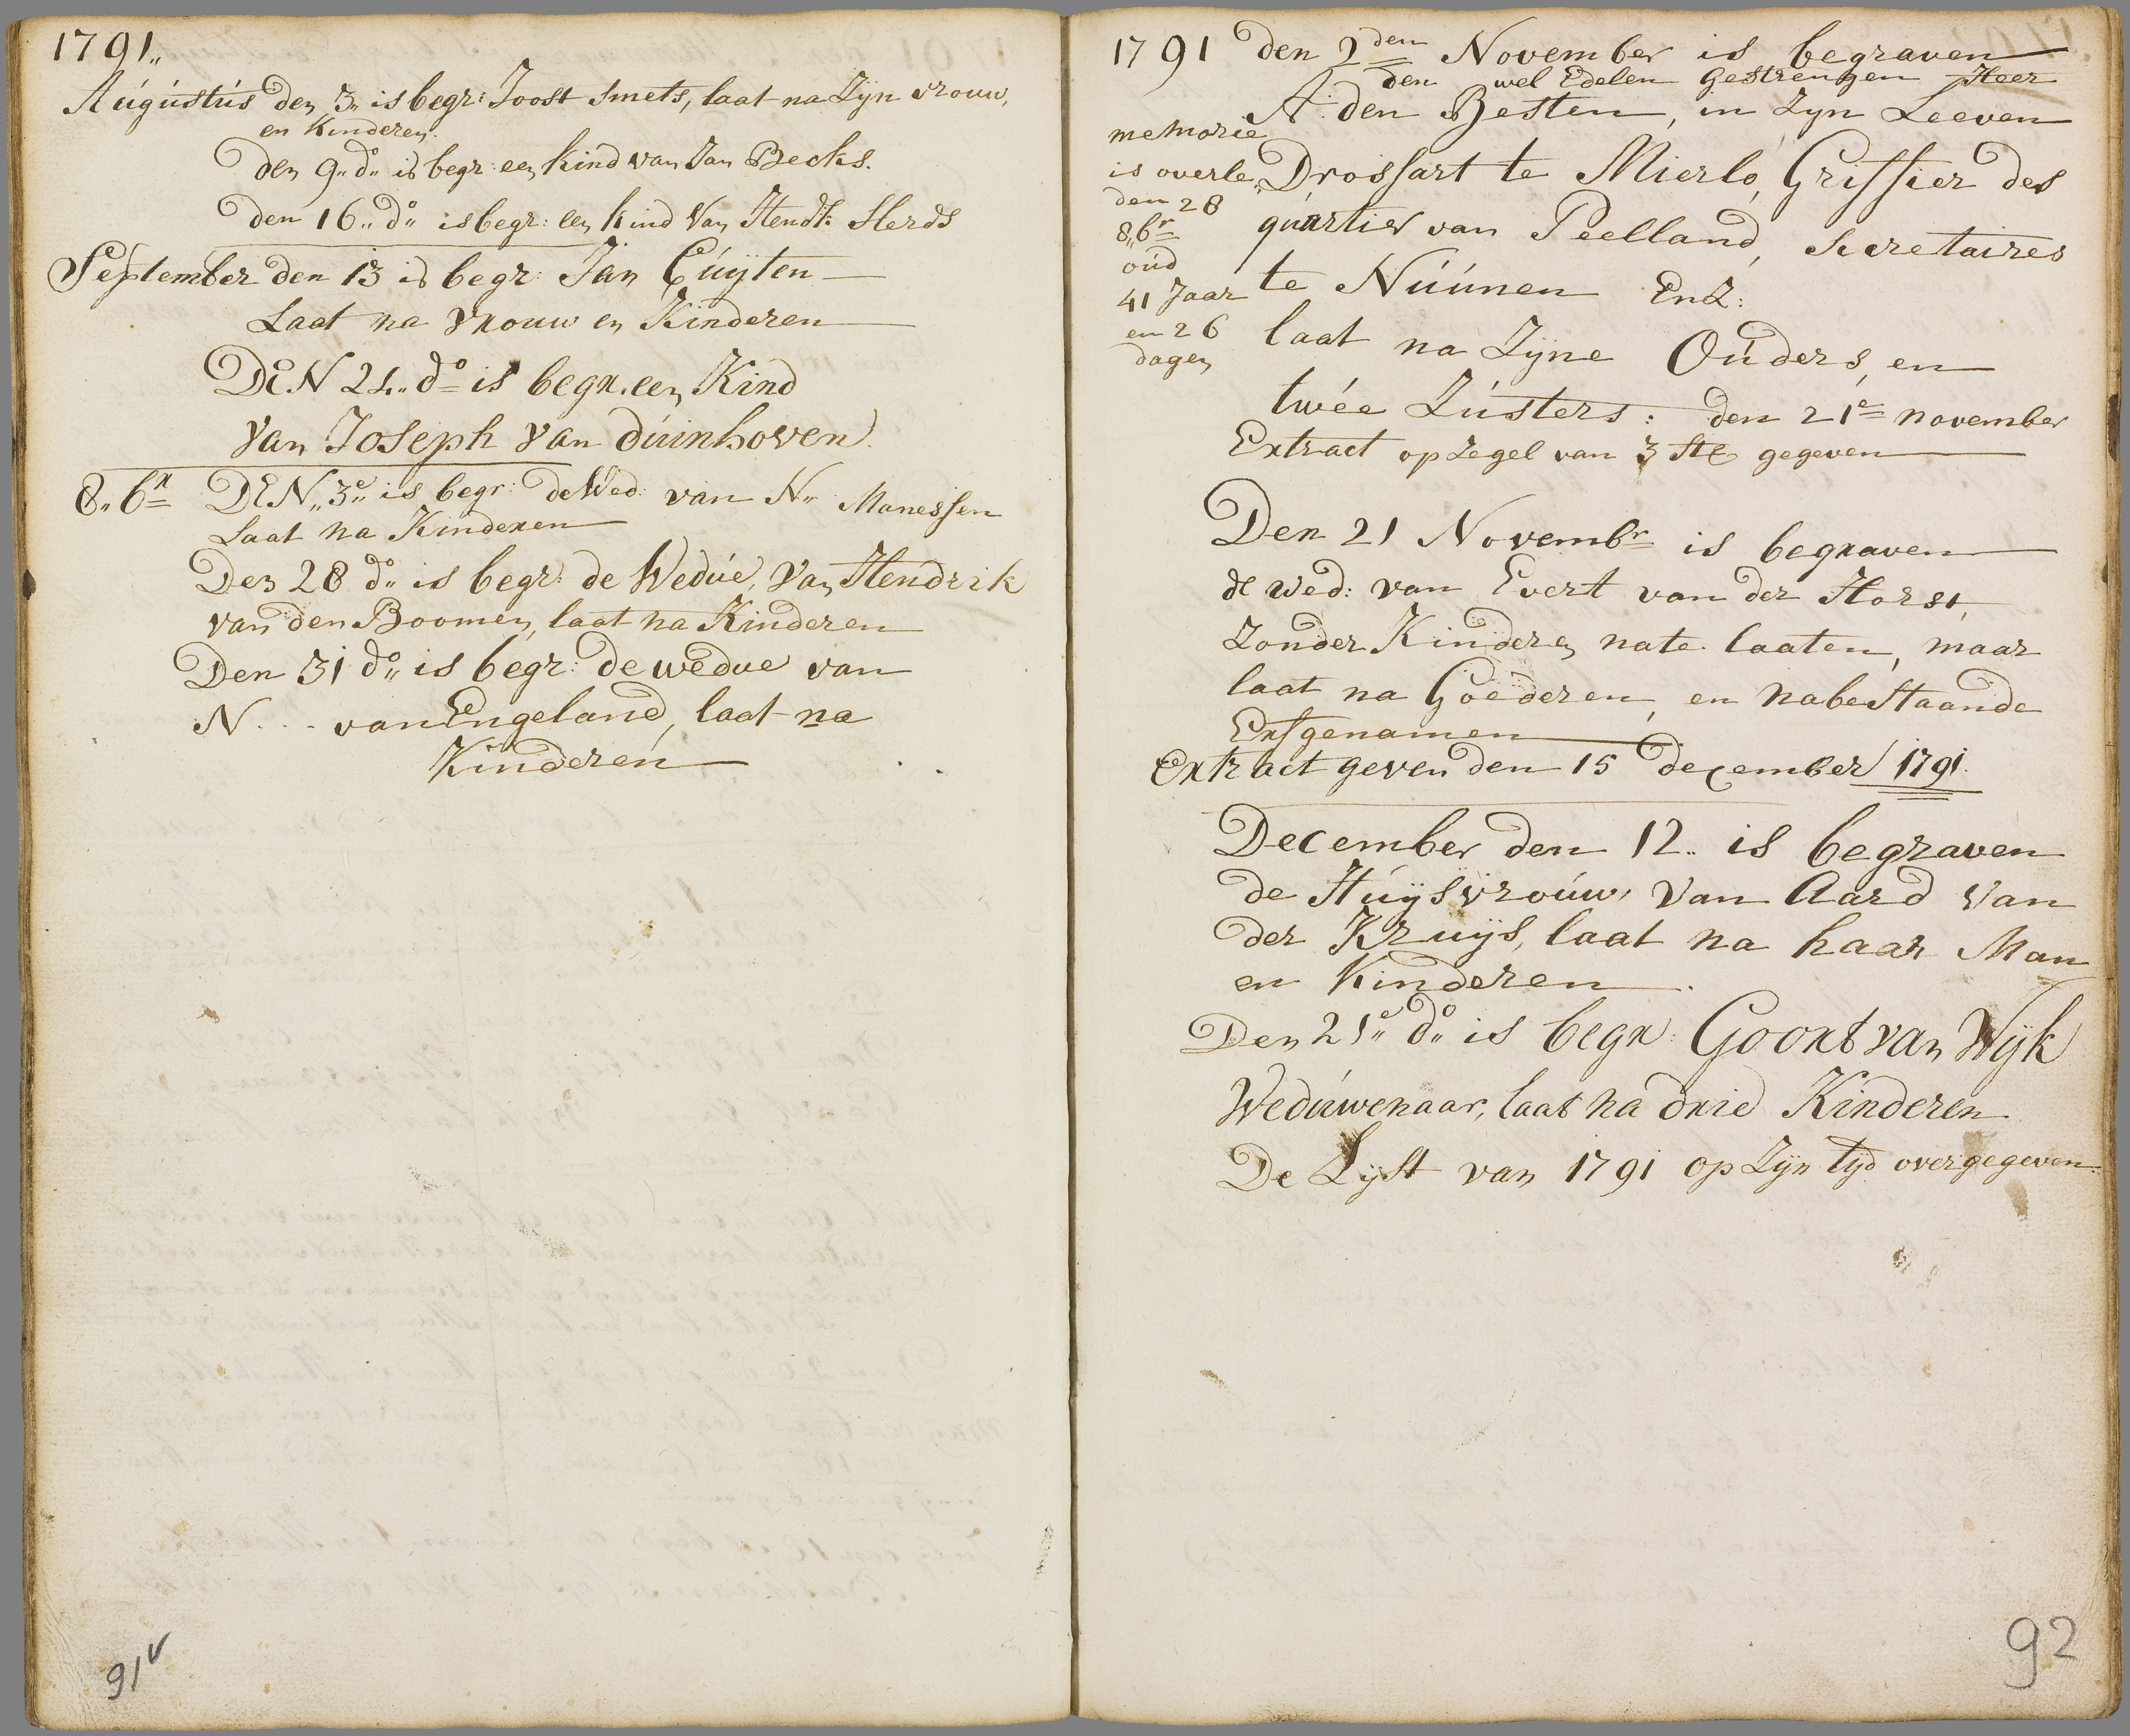 1791„
Aúgústús den 3„ is begr: Joost Smets, laat na Zyn vrouw,
en Kinderen.
den 9„ do„ is begr: een kind van Jan Becks.
den 16„ do„ is begr: een kind van Hendk: Sterds
September den 13 is begr: Jan Cúÿten
Laat na Vrouw en Kinderen
DEN 24„ do is begr. een Kind
Van Joseph Van dúinhoven.
8„br DEN„ 3e„ is begr: de Wed: van N„ Manessen
Laat na Kinderen
Den 28 do„ is begr: de Wedúe, Van Hendrik
van den Boomen, laat na Kinderen
Den 31 do„ is begr: de wedue van
N... van Engeland, laat na
Kinderen
91v
1791 den 2den November is begraven
den wel Edelen Gestrengen Heer
A: den Besten, in Zyn Leeven
Drossart te Mierlo, Griffier des
quartier van Peelland, Secretaires
te Núúnen EnZ:
laat na Zÿne Oúders, en
twée Zústers: den 21e november
Extract op Zegel van 3 St gegeven
memorie
is overle„
den 28
8„br
oúd
41 Jaar
en 26
dagen
Den 21 Novembr is begraven
de Wed: van Evert van der Horst,
Zonder Kinderen nate laaten, maar
laat na Goederen, en nabestaande
Erfgenamen
Extract geven den 15 december 1791.
December den 12„ is begraven
de Húÿsvroúw, Van Aard Van
der Kruÿs, laat na haar Man
en Kinderen.
Den 21e„ do„ is begr: Goort van Wÿk
Wedúwenaar, laat na drie Kinderen
De Lÿst van 1791 op Zÿn tÿd overgegeven.
92